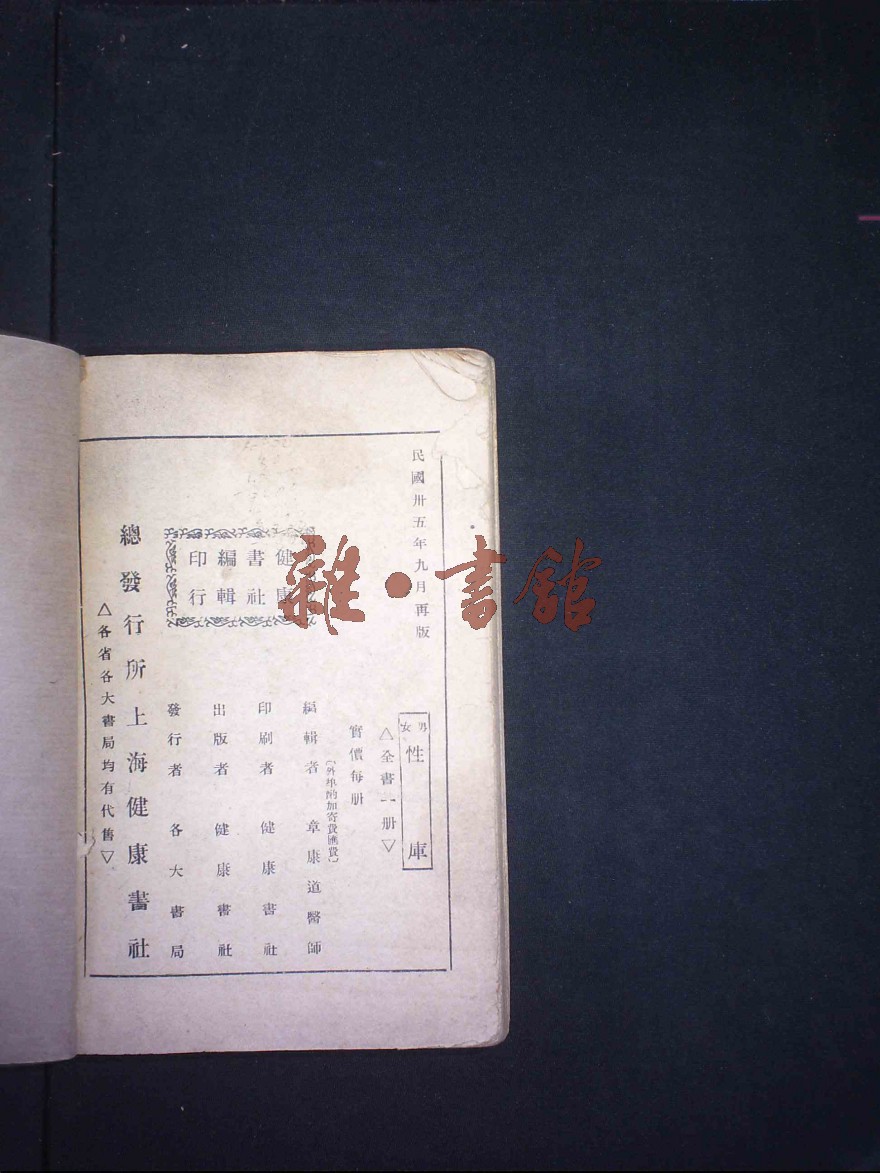 民國卅五年九月再版
男女性庫
△全書一册▽
實價每册
(外埠酌加寄費匯費)
編輯者 章康道醫師
印刷者 健康書社
出版者 健康書社
發行者 各大書局
健康
書社
編輯
印行
總發行所上海健康書社
△各省各大書局均有代售▽
雜·書館